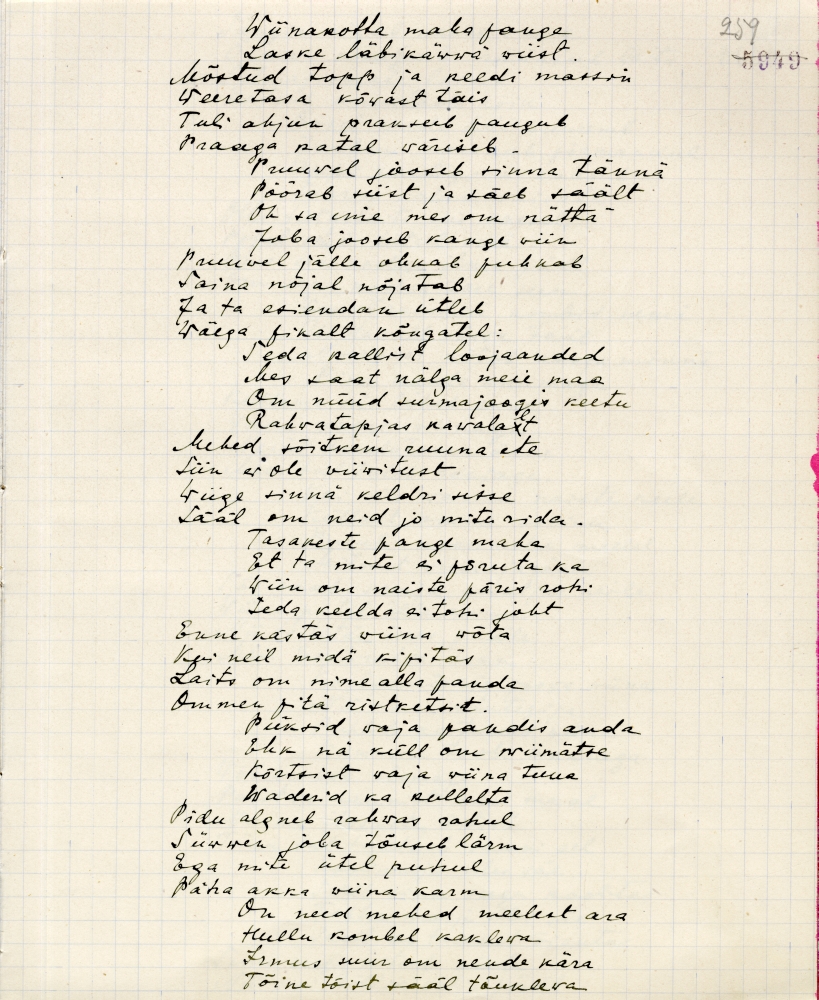 259
5949
Wiinakotta maha pange
Laske läbikäwwä wiist.
Mõstud topp ja keedi massin
Weeretasa kõwast täis
Tuli ahjun prakseb paugub
Praaga katal wäriseb.
Pruuwel jooseb sinna tännä
Pöörab siist ja säeb säält
Oh sa ime mes om nättä
Joba jooseb kange wiin
Pruuwel jälle ohkab puhkab
Saina nõjal nõjatab
Ja ta esiendan ütleb
Wäega pikalt kõngatel:
Seda kallist loojaanded
Mes saat nälga meie maa
Om nüüd surmajoogis keetu
Rahwatapjas kawalast
Mehed sõitkem ruuna ete
Siin ei ole wiiwitust
Wiige sinnä keldri sisse
Sääl om neid jo mitu rida.
Tasakeste pange maha
Et ta mite ei põruta ka
Wiin om naiste päris rohi
Seda keelda ei tohi joht
Enne kästäs wiina wõta
Kui neil midä kipitäs
Laits om nime alla panda
Ommen pitä ristketsit.
Püksid waja pandis anda
Ehk nä küll om wiimätse
Kõrtsist waja wiina tuua
Waderid ka kullelta
Pidu algneb rahwas rahul
Süwwen joba tõuseb lärm
Ega mite ütel puhul
Päha akka wiina karm
On need mehed meelest ara
Hullu kombel kaklewa
Irmus suur om nende kära
Tõine tõist sääl tõuklewa